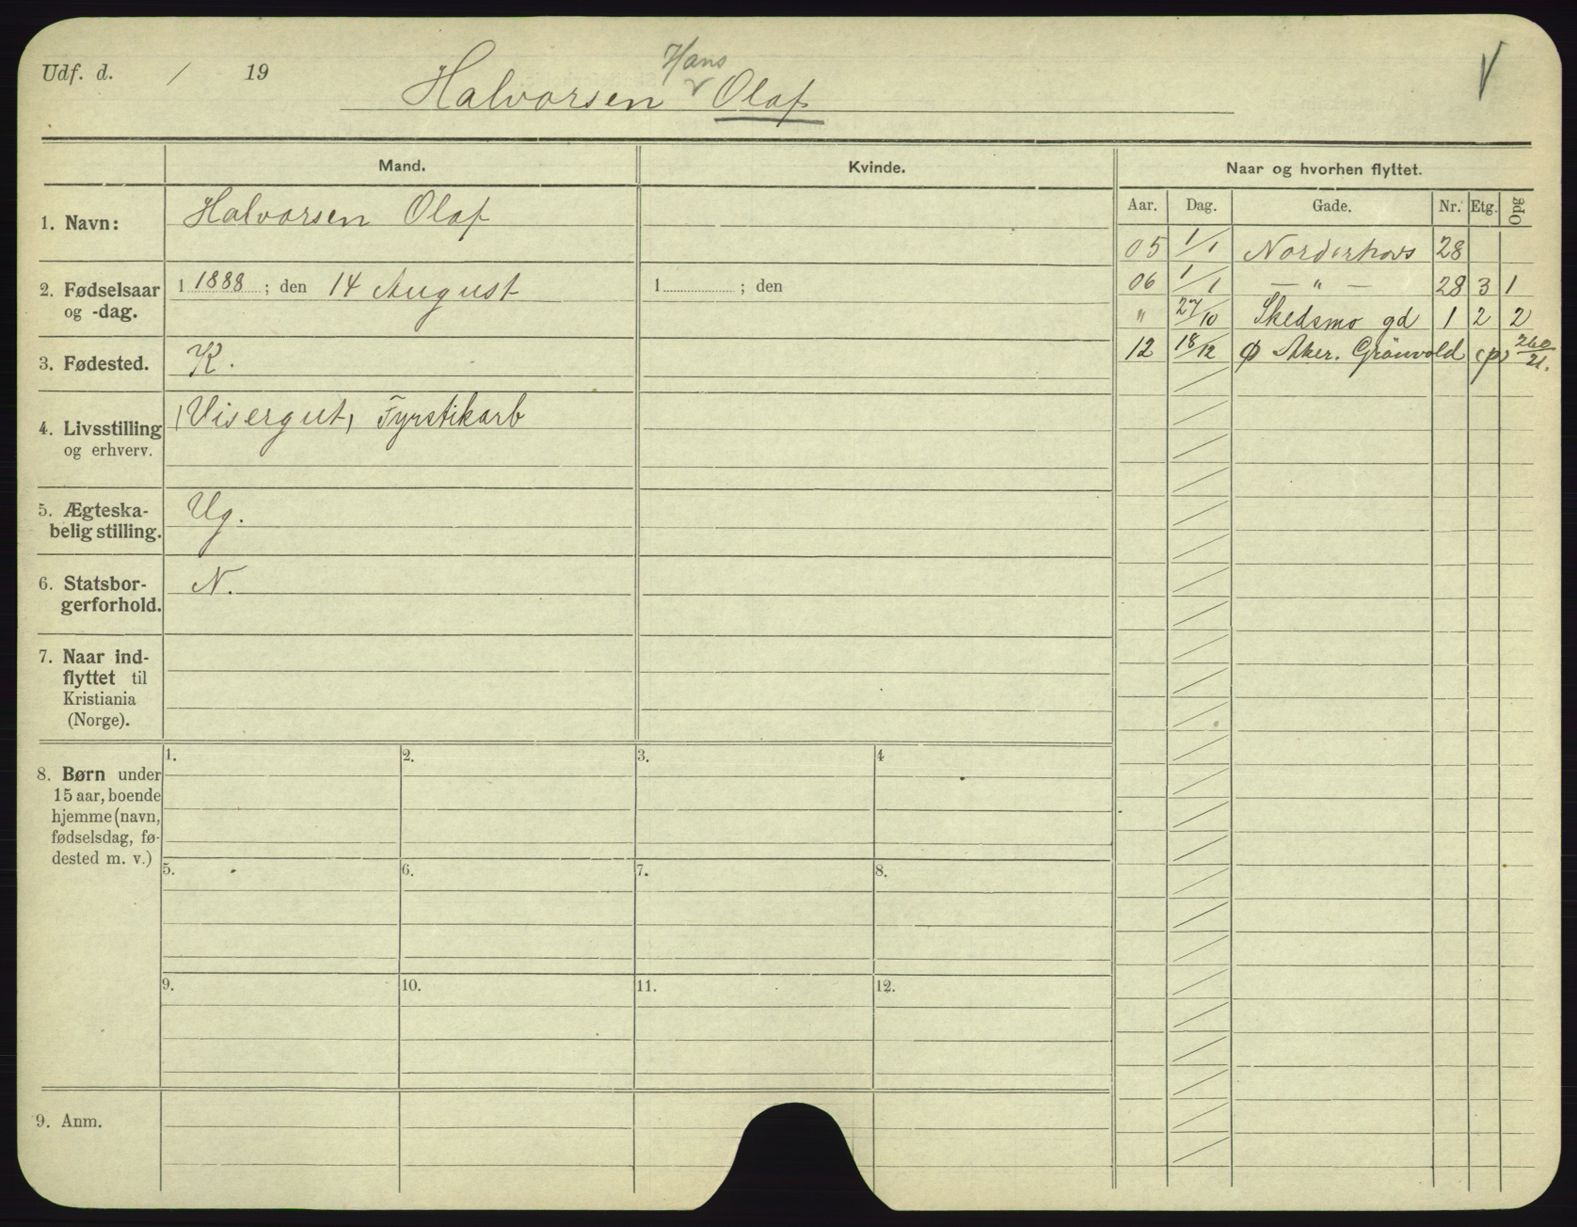 Udf. d. / 19
Hans
Halvorsen √ Olaf
V
Mand.
Kvinde.
Naar og hvorhen flyttet.
Aar. Dag. Gade. Nr. Etg. Opg
1. Navn: Halvorsen Olaf
05 1/1 Norderhovs 28
2. Fødselsaar og -dag. 1 1888 ; den 14 August 1 ; den
06 1/1 — " — 28 3 1
" 27/10 Skedsmo gd 1 2 2
12 18/12 Φ Aker. Grönvold (p) 260/21.
3. Fødested. K.
4. Livsstilling og erhverv. (Visergut) Fyrstikarb
5. Ægteska-
belig stilling. Ug.
6. Statsbor-
gerforhold. N.
7. Naar ind-
flyttet til
Kristiania
(Norge).
8. Børn under
15 aar, boende
hjemme (navn,
fødselsdag, fø-
dested m. v.)
1. 2. 3. 4
5. 6. 7. 8.
9. 10. 11. 12.
9. Anm.